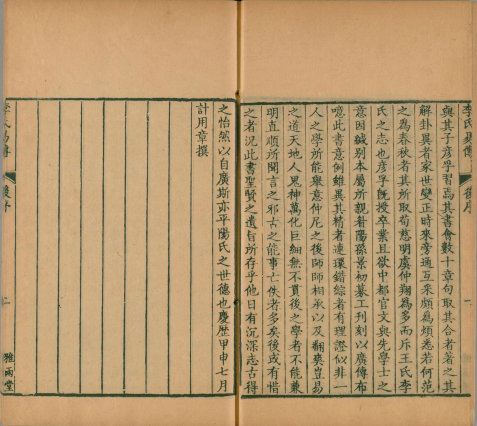 李氏易傳 後序 一
與其子彥孚習焉其書會數十章句取其合者著之其
解卦異者家世變正時來旁通互采頗為煩悉若何范
之為春秋者其所取荀慈明虞仲翔為多而斥王氏李
氏之志也彥孚旣授卒業且欲中都官文與先學士之
意因緘別本屬所親眷陽孫景初募工刊刻以廣傳布
噫此書意例雖異其精者連環錯綜者有理證似非一
人之學所能舉意仲尼之後師師相承以及翻爽豈易
之道天地人鬼神萬化巨細無不貫後之學者不能兼
明直順所聞言之邪古之能事亡佚者多矣後或有惜
之者況此書聖賢之遺旨所存乎他日有沉深志古得
之怡然以自廣斯亦平陽氏之世德也慶歷甲申七月
計用章撰
李氏易傳 後序 二
雅雨堂